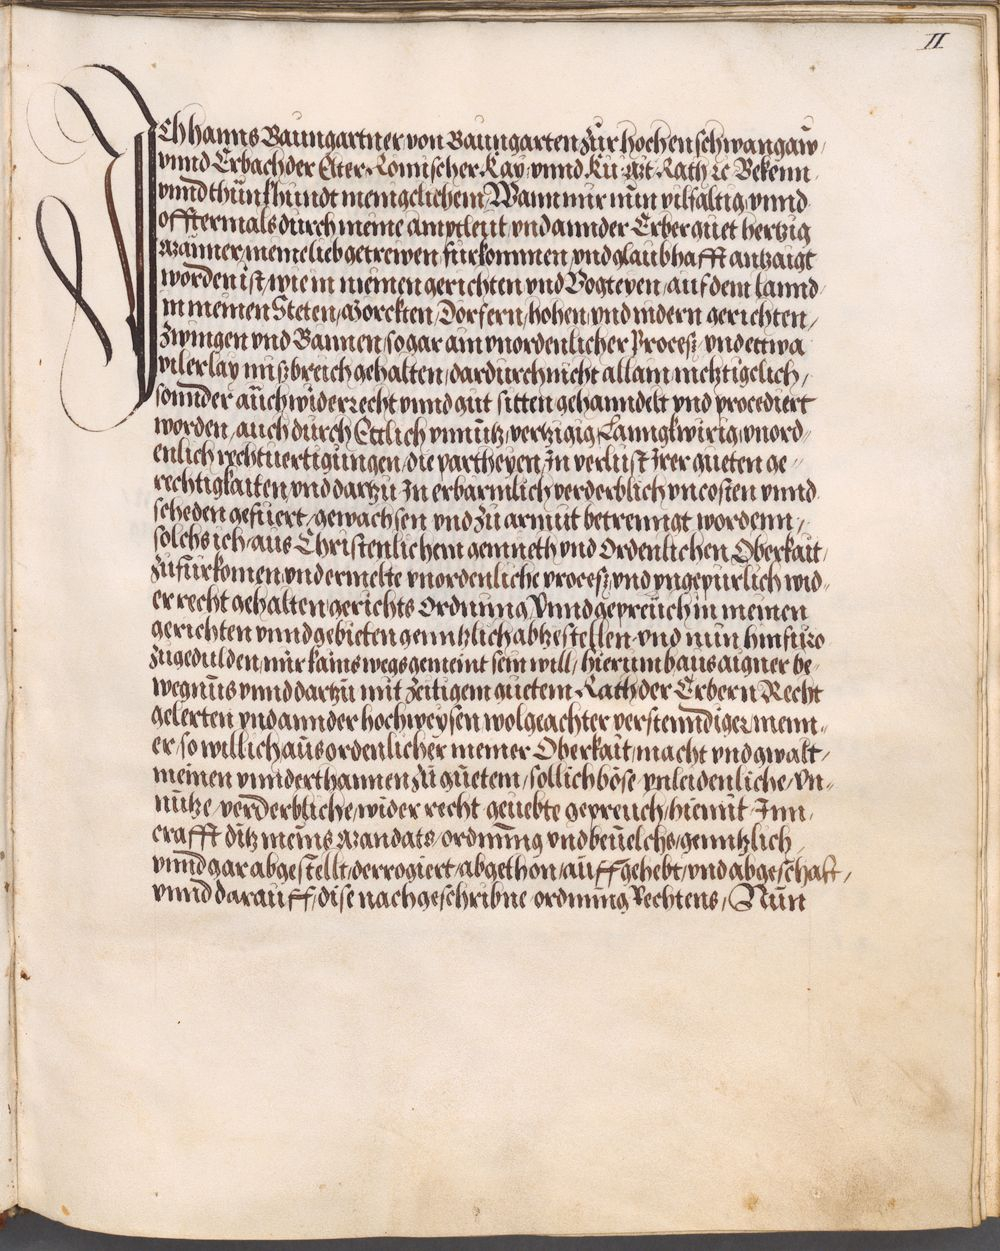 II
Ich hanns Baumgartner von Baumgarten zur hochen schwangaw,
vnnd Erbach der Elter Romischer Kay: vnnd Kü: Mt: Rath ꝛc Bekenn,
vnnd thün khundt menigclichem, Wann mir nün vilfältig vnnd
offtermals durch meine amptleut vnd annder Erber guet hertzig
Männer, meine lieb getrewen fürkommen vnd glaubhafft antzaigt
worden ist, wie in meinen gerichten vnd Vogteyen, auf dem lannd,
in meinen Steten, Morckten, Dorfern, hohen vnd nidern gerichten,
Zwingen vnd Bannen so gar ain vnordenlicher Proceß, vnd ettwa
vilerlay mißbreich gehalten, dardurch nicht allain nichtigclich,
sonnder auch wider recht vnnd gut sitten gehanndelt vnd procediert
worden, auch durch Ettlich vnnütz, vertzigig Lanngkwirig, vnord-
enlich rechtuertigungen, die partheyen, In verlust Irer gueten ge-
rechtigkaiten, vnd dartzu In erbarmlich verderblich vncosten vnnd
scheden gefüert, gewachsen vnd zu armut betrenngt wordenn,
solchs ich, aus Christenlichem gemueth vnd Ordenlichen Oberkait,
zufürkomen, vnd ermelte vnordenliche proceß, vnd vngepürlich wid-
er recht gehalten gerichts Ordnung Vnnd gepreüch in meinen
gerichten vnnd gebieten genntzlich abtzestellen, vnd nun hinfüro
zugedulden, mir kains wegs gemeint sein will, hierumb aus aigner be-
wegnüs vnnd dartzü mit zeitigem guetem Rath der Erbern Recht
gelerten vnd annder hochweysen wolgeachter verstenndiger menn-
er, so will ich aus ordenlicher meiner Oberkait, macht vnd gwalt,
meinen vnnderthannen zü güetem, sollich böse vnleidenliche, Vn-
nütze, verderbliche, wider recht geuebte gepreuch, hiemit, Inn,
crafft ditz meins Mandats, ordnung vnd beuelchs, genntzlich,
vnnd gar abgestellt, derrogiert, abgethon, auffgehebt, vnd abgeschaft,
vnnd darauff, dise nachgeschribne ordnung Rechtens, Nün